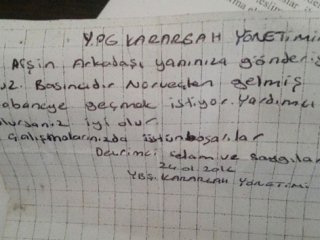 Y.P.G KARARGAH YÖNETİMİ
Arşin Arkadaşı yanınıza gönderi
uz. Basıncıdır Norveçten gelmiş
geçmek istiyor. Yardımcı
iyi olur.
Çalışmalarınızda üstün başalılar
Devrimci selam ve saygılar
24.01.2014
YBŞ. KARARGAH YÖNETİMİ